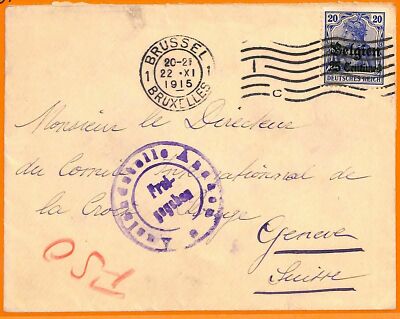 BRUSSEL
20-21
1 22.XI 1
1915
BRUXELLES
C
20 20
Belgien
25 Centimes
DEUTSCHES REICH
Monsieur le Directeur
du Comité International de
la Croix Rouge
Genève
Suisse
Auslandstelle Aachen
Frei-
gegeben